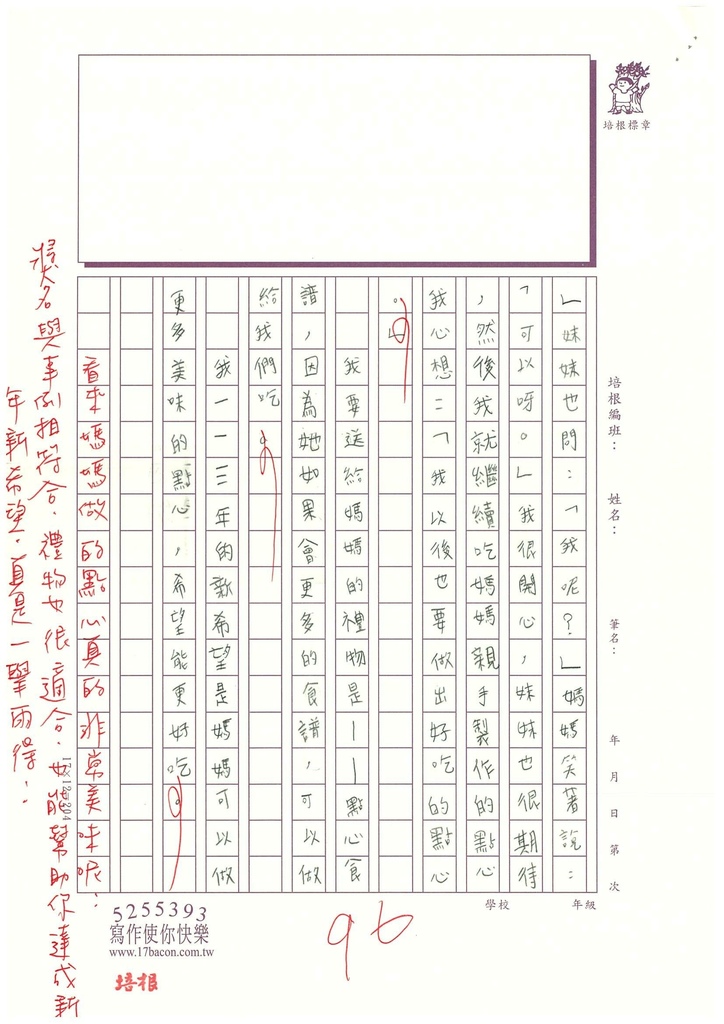 培根標章
培根編班：　姓名：　筆名：　年　月　日　第　次
」妹妹也問：「我呢？」媽媽笑著說：
「可以呀。」我很開心，妹妹也很期待
，然後我就繼續吃媽媽親手製作的點心
我心想：「我以後也要做出好吃的點心
。」
我要送給媽媽的禮物是——點心食
譜，因為她如果會更多的食譜，可以做
給我們吃。
我一一三年的新希望是媽媽可以做
更多美味的點心，希望能更好吃。
看來媽媽做的點心真的非常美味呢！
獎名與事例相符合，禮物也很適合，也能幫助你達成新
年新希望，真是一舉兩得！
學校　年級
96
5255393
寫作使你快樂
www.17bacon.com.tw
培根